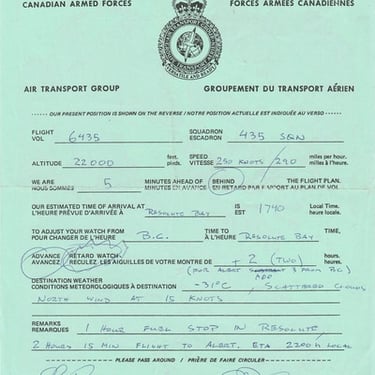 CANADIAN ARMED FORCES
FORCES ARMÉES CANADIENNES
AIR TRANSPORT GROUP
GROUPEMENT DU TRANSPORT AÉRIEN
OUR PRESENT POSITION IS SHOWN ON THE REVERSE / NOTRE POSITION ACTUELLE EST INDIQUÉE AU VERSO
FLIGHT VOL 6435 SQUADRON ESCADRON 435 SQN
ALTITUDE 22000 feet. pieds. SPEED VITESSE 250 KNOTS / 290 miles per hour. milles à l'heure.
WE ARE NOUS SOMMES 5 MINUTES AHEAD OF MINUTES EN AVANCE BEHIND EN RETARD PAR RAPPORT AU PLAN DE VOL. THE FLIGHT PLAN.
OUR ESTIMATED TIME OF ARRIVAL AT L'HEURE PRÉVUE D'ARRIVÉE À RESOLUTE BAY IS EST 1740 Local Time. heure locale.
TO ADJUST YOUR WATCH FROM POUR CHANGER DE L'HEURE B.C. TIME TO À L'HEURE RESOLUTE BAY TIME,
ADVANCE AVANCEZ RETARD WATCH RECULEZ LES AIGUILLES DE VOTRE MONTRE DE + 2 (TWO) hours. heures.
(FOR ALERT ADD 3 FROM B.C.)
DESTINATION WEATHER CONDITIONS MÉTÉOROLOGIQUES À DESTINATION -31°C SCATTERED CLOUDS
NORTH WIND AT 15 KNOTS
REMARKS REMARQUES 1 HOUR FUEL STOP IN RESOLUTE
2 HOURS 15 MIN FLIGHT TO ALERT. ETA 2200 H LOCAL
PLEASE PASS AROUND / PRIÈRE DE FAIRE CIRCULER